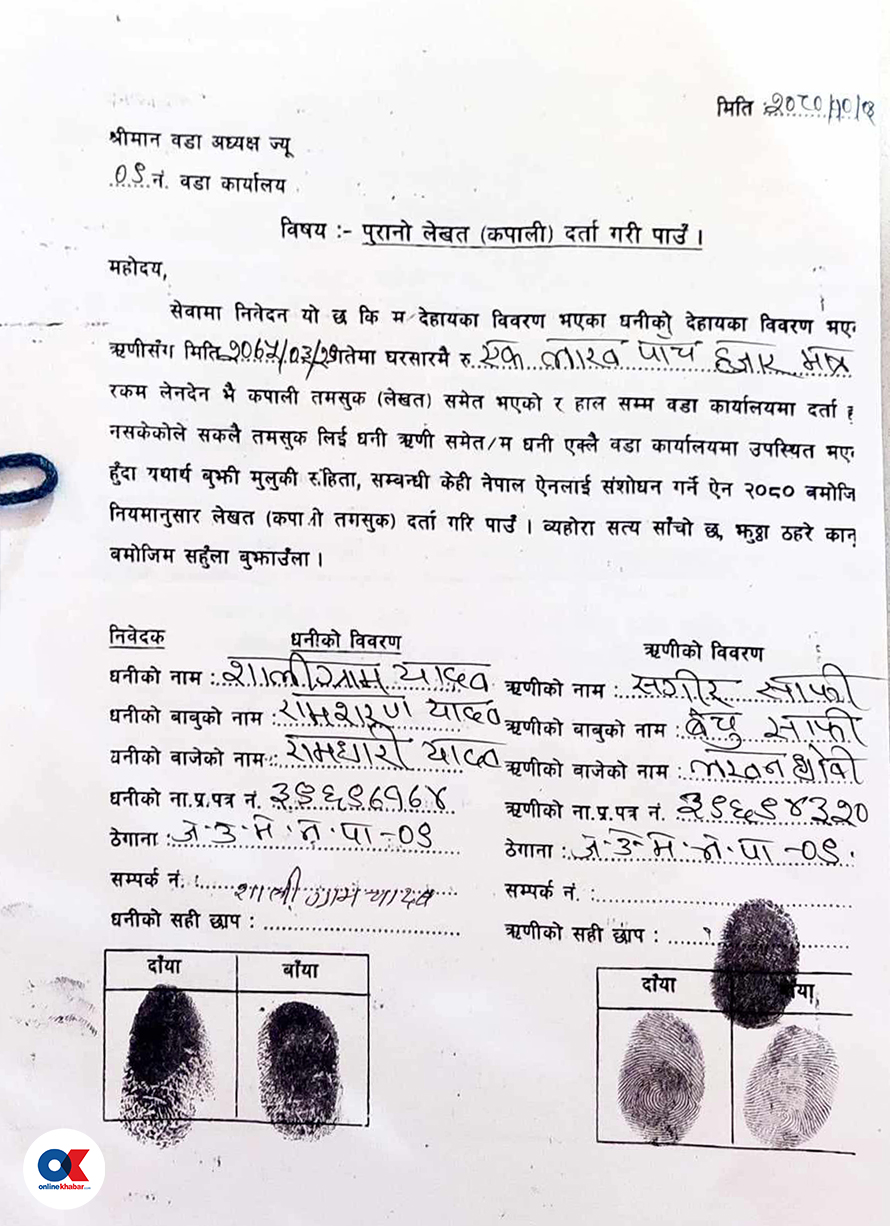 मिति :२०८०/१०/१३
श्रीमान वडा अध्यक्ष ज्यू
०९ नं. वडा कार्यालय
विषय :- पुरानो लेखत (कपाली) दर्ता गरी पाउँ ।
महोदय,
सेवामा निवेदन यो छ कि म देहायका विवरण भएका धनीको देहायका विवरण भए
ऋणीसँग मिति २०६५/०३/२१ गतेमा घरसारमै रु एक लाख पाँच हजार मात्र
रकम लेनदेन भै कपाली तमसुक (लेखत) समेत भएको र हाल सम्म वडा कार्यालयमा दर्ता ह
नसकेकोले सक्कलै तमसुक लिई धनी ऋणी समेत/म धनी एक्लै वडा कार्यालयमा उपस्थित भए
हुँदा यथार्थ बुझी मुलुकी संहिता, सम्बन्धी केही नेपाल ऐनलाई संशोधन गर्ने ऐन २०८० बमोजि
नियमानुसार लेखत (कपाली तमसुक) दर्ता गरि पाउँ । व्यहोरा सत्य साँचो छ, झुठ्ठा ठहरे कानू
बमोजिम सहुँला बुझाउँला ।
निवेदक धनीको विवरण ऋणीको विवरण
धनीको नाम : शालीग्राम यादव ऋणीको नाम : सगीर साफी
धनीको बाबुको नाम : रामशरण यादव ऋणीको बाबुको नाम : बेचु साफी
धनीको बाजेको नाम : रामधारी यादव ऋणीको बाजेको नाम : लखन धोबी
धनीको ना.प्र.पत्र नं. ३९६९८१६४ ऋणीको ना.प्र.पत्र नं. ३९६९४३२०
ठेगाना : ज.उ.मि.न.पा-०९ ठेगाना : ज.उ.मि.न.पा-०९.
सम्पर्क नं. : शालीग्राम यादव सम्पर्क नं. :
धनीको सही छाप : ऋणीको सही छाप :
दाँया बाँया दाँया
onlinekhabar.com